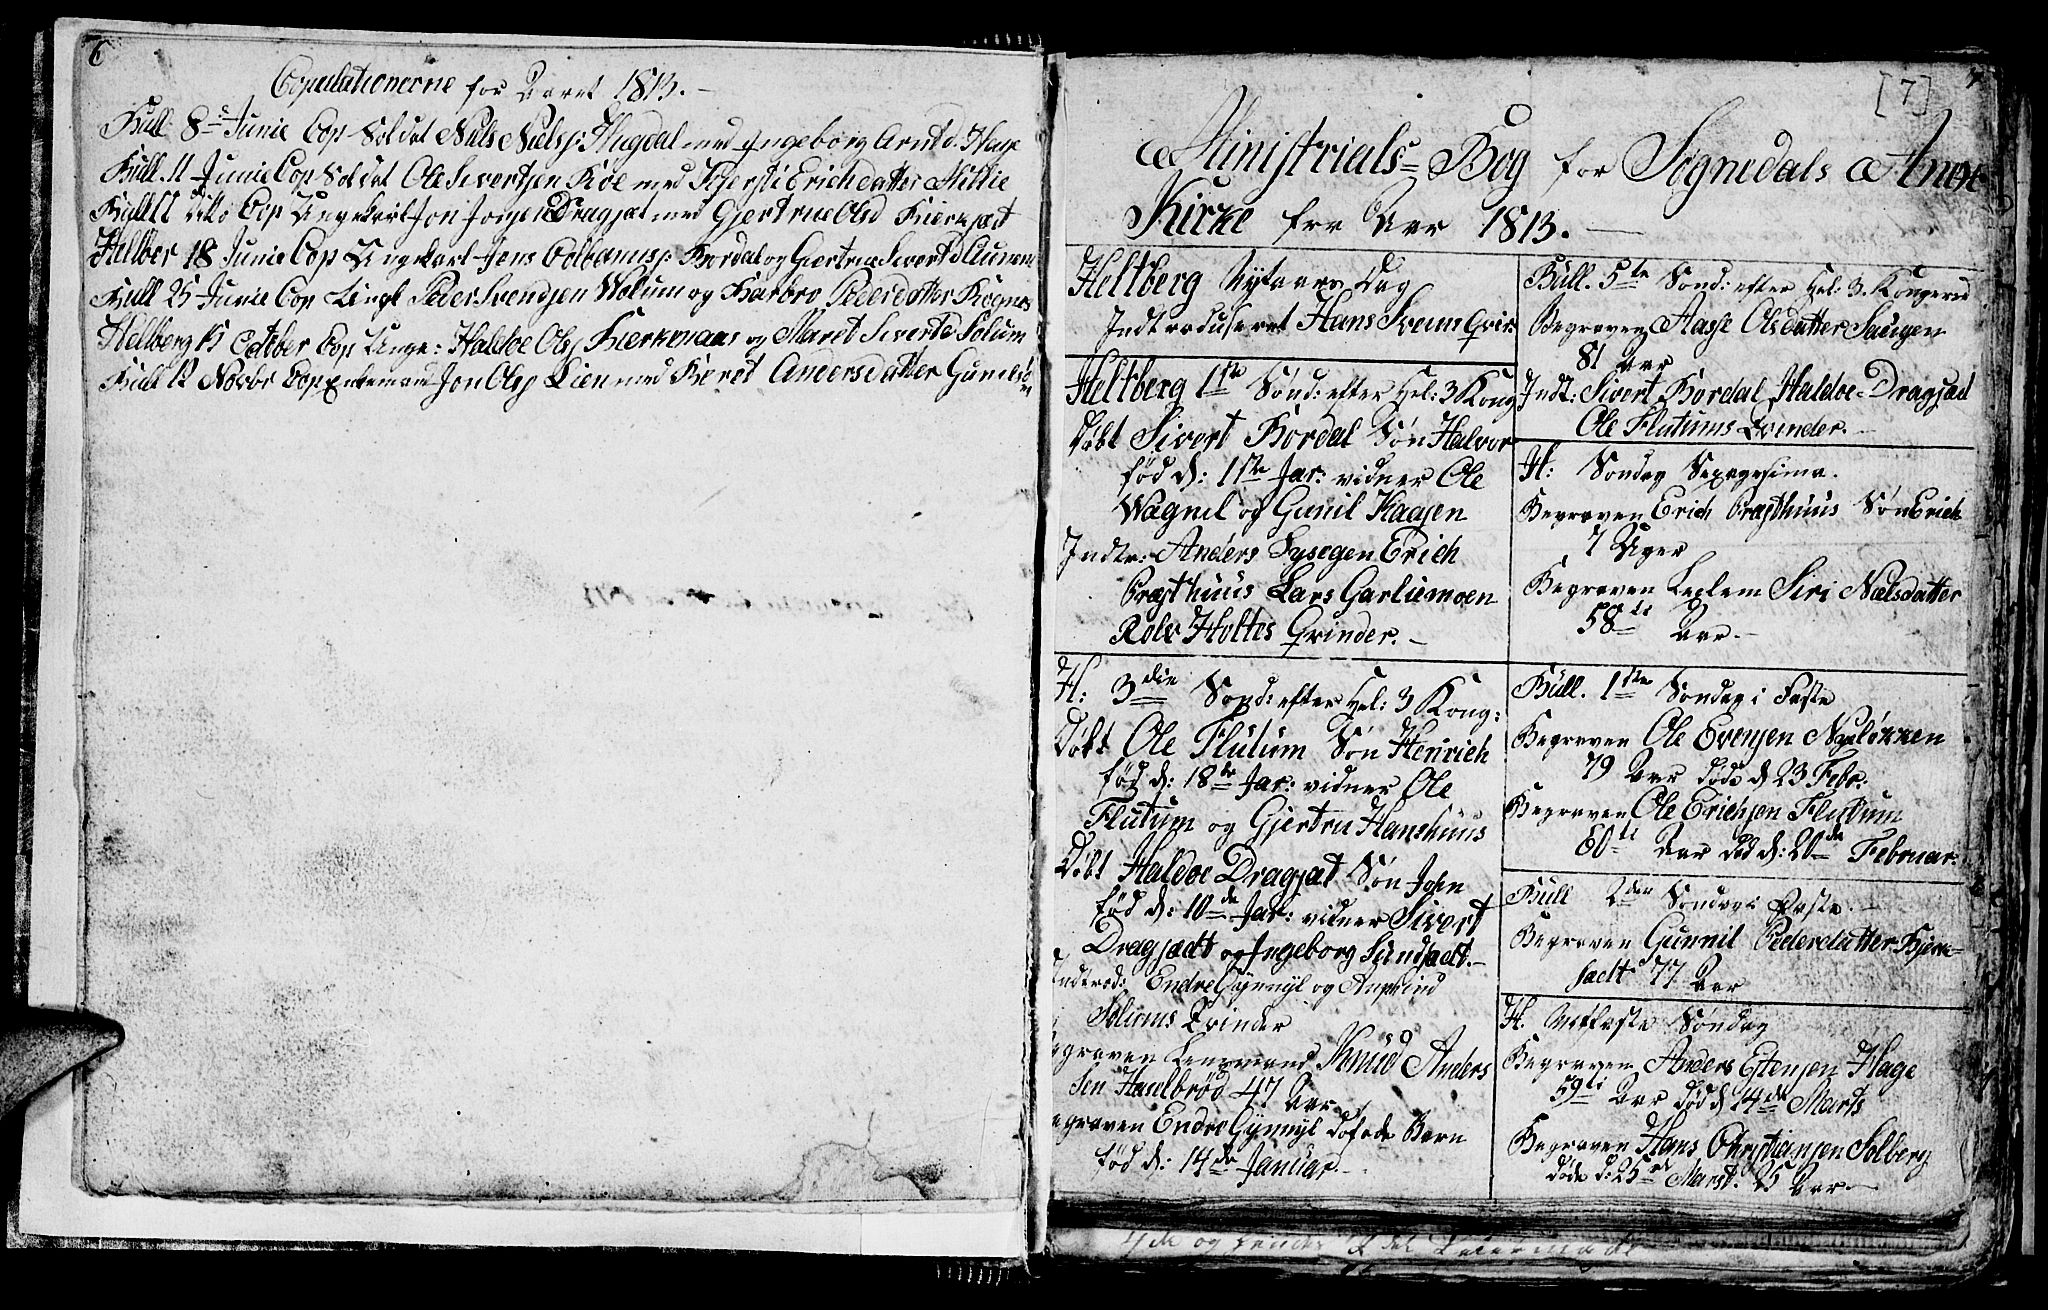 6
Copulationerne for Aaret 1813.
Bull. 8de Junie Cop Soldat Niels Nielss: Hugdal med Ingeborg Arntd: Hage
Bull. 11 Junie Cop Soldat Ole Sivertsen Kiøe med Kjersti Erichdatter Millie
Bull 11 dito Cop Ungekarl Jon Joegen Dragsæt med Gjertrue Olsd Kierksæt
Hellber 18 Junie Cop Ungekarl Jens Colbanss: Bordal og Giertrue Sivertd
Bull 25 Junie Cop Ungk Peder Svendsen Wolum og Barbro Pedersdatter Rognes
Helberg October Cop Unge: Haldoe Ols Kierkemans og Maret Sivertd: Solum
Bull 12 Novbr Cop Enkemand Jon Ols Lien med Beret Andersdatter
[7]
Ministrials-Bog for Sognedals Anex
Kirke for Aar 1813.
Heltberg Nytaars Dag
Indtroduseret Hans Svens Qvin
Heltberg 1ste Sønd: efter Hel: 3 Kong
Døbt Sivert Bordal Søn Halvor
fød d: 1ste Jar: vidner Ole
Wagnil og Gunil Kaasen
Indtr: Anders Sysegen Erich
Præsthuus Lars Garliemoen
Rolv Holtes Qvinder.
H: 3die Sønd: efter Hel: 3 Kong:
Døbt Ole Flutum Søn Henrich
fød d: 18de Jar: vidner Ole
Flutum og Gjertru Hanshuus
Døbt Haldoe Dragsæt Søn John
fød d: 10de Jar: vidner Sivert
Dragsædt og Ingeborg Sundsadt.
Indtrod: Endre Gynnyl og Amund
Solums Qvinder
egraven Lensmand Knud Anders
sen Haselbrød 47 Aar
egraven Endre Gynnyl døføde Barn
fød d: 14de Januar
Bull. 5te Sønd: efter Hel: 3. Kongers
Begraven Aasse Olsdatter Saugen
81 Aar
Indt: Sivert Bordal Haldoe Dragsæd
Ole Flutums Qvinder.
H: Søndag Sexagesima.
Begraven Erich Præsthuus Søn Erich
7 Uger
Begraven Leylem Siri Nielsdatter
58ti Aar
Bull. 1ste Søndag i Faste
Begraven Ole Evensen Nyeløkken
79 Aar døde d 23 Febr:
Begraven Ole Erichsen Flutum
60ti Aar død d: 20de Februar:
Bull 2den Søndag i Faste.
Begraven Gunnil Pedersdatter Kjerk-
sadt 77 Aar
H. Midfaste Søndag
Begraven Anders Estensen Hage
59ti Aar død d 14de Marts
Begraven Hans Christiansen Solberg
døde d: 25de Marst. 25 Aar.